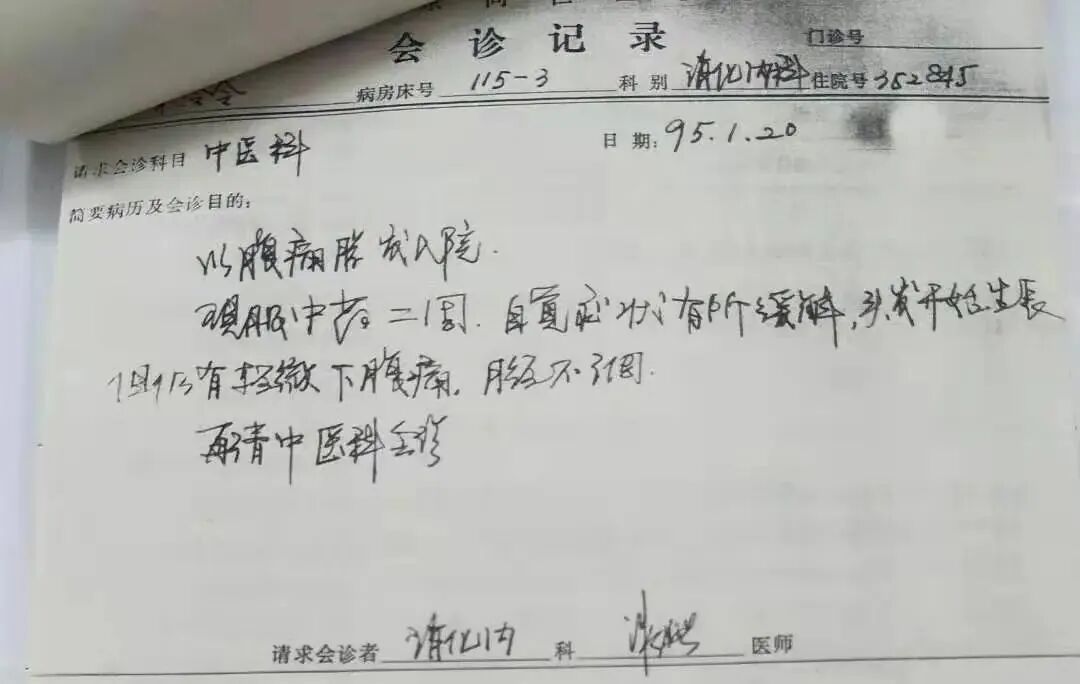 会诊记录 门诊号
病房床号 115-3 科别 消化内科 住院号 352845
请求会诊科目 中医科 日期: 95.1.20
简要病历及会诊目的:
以腹痛脱发入院.
现服中药二周.自觉症状有所缓解,头发开始生长
但仍有轻微下腹痛,月经不调.
再请中医科会诊
请求会诊者 消化内 科 医师